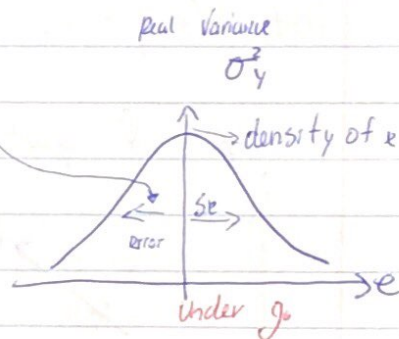 real Variance
σ²y
density of e
Se
error
e
Under g₀